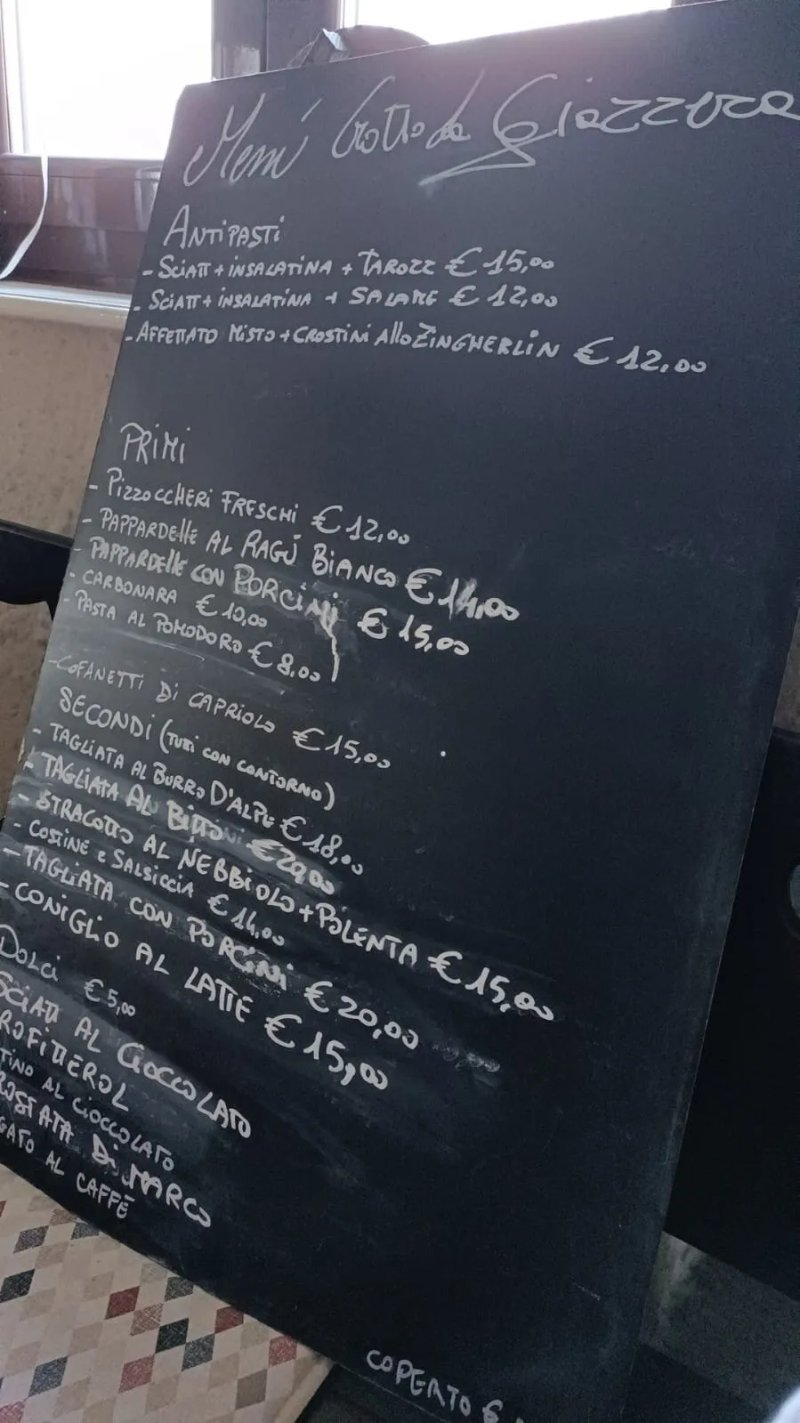 Menù Grotto da Giazzera
ANTIPASTI
- SCIATT + INSALATINA + TAROZZ € 15,00
- SCIATT + INSALATINA + SALAME € 12,00
- AFFETTATO MISTO + CROSTINI Allo ZINGHERLIN € 12,00
PRIMI
- PIZZOCCHERI FRESCHI € 12,00
- PAPPARDELLE AL RAGÙ BIANCO € 14,00
- PAPPARDELLE CON PORCINI € 15,00
- CARBONARA € 10,00
- PASTA AL POMODORO € 8,00
- COFANETTI DI CAPRIOLO € 15,00
SECONDI (TUTTI CON CONTORNO)
- TAGLIATA AL BURRO D'ALPE € 18,00
- TAGLIATA AL BITTO €
- STRACOTTO AL NEBBIOLO + POLENTA € 15,00
- COSTINE E SALSICCIA € 14,00
- TAGLIATA CON PORCINI € 20,00
- CONIGLIO AL LATTE € 15,00
DOLCI € 5,00
SCIATT AL CIOCCOLATO
ROFITTEROL
TINO AL CIOCCOLATO
ROSTATA DI MARCO
GATO AL CAFFÈ
COPERTO €